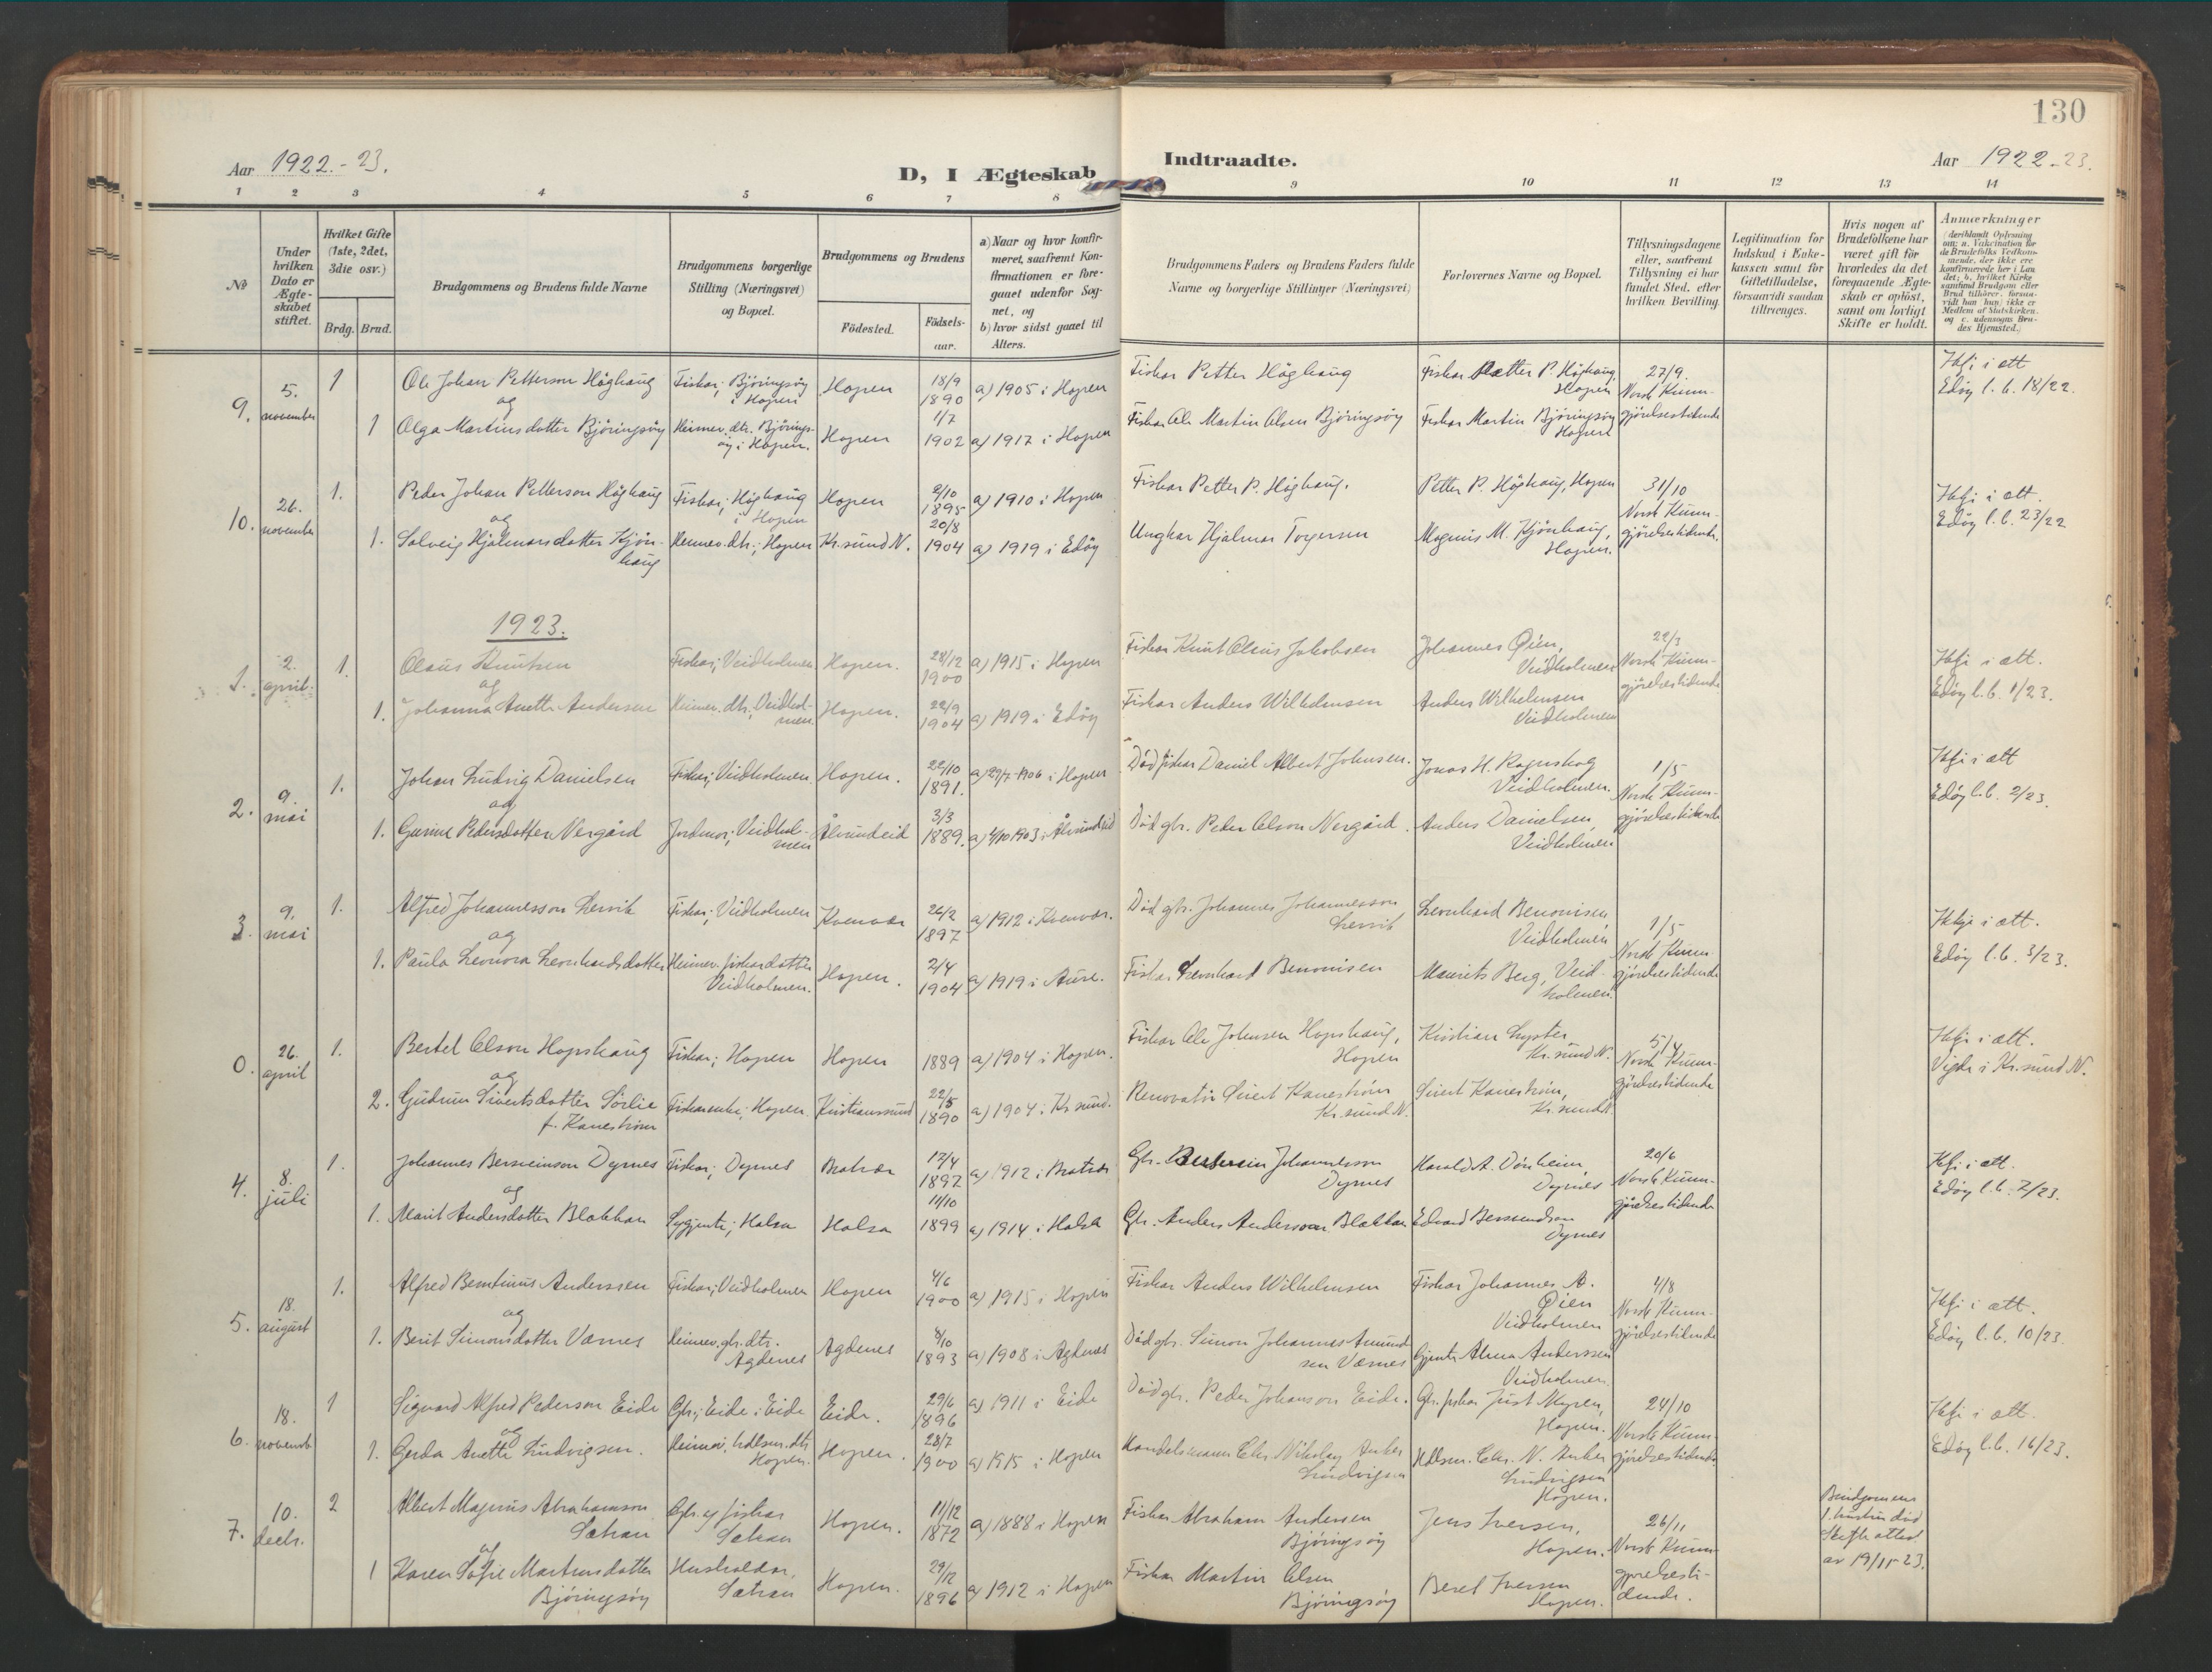 130
Aar 1922.-23.
D, I Ægteskab
Indtraadte.
Aar 1922-23.
1 2 3 4 5 6 7 8 9 10 11 12 13 14
№
Under
hvilken
Dato er
Ægte-
skabet
stiftet.
Hvilket Gifte
(1ste, 2det,
3die osv.)
Brdg. Brud.
Brudgommens og Brudens fulde Navne
Brudgommens borgerlige
Stilling (Næringsvei)
og Bopæl.
Brudgommens og Brudens
Födested.
Födsels-
aar.
a) Naar og hvor konfir-
meret, saafremt Kon-
firmationen er fore-
gaaet udenfor Sog-
net, og
b) hvor sidst gaaet til
Alters.
Brudgommens Faders og Brudens Faders fulde
Navne og borgerlige Stillinger (Næringsvei)
Forlovernes Navne og Bopæl.
Tillysningsdagene
eller, saafremt
Tillysning ei har
fundet Sted, efter
hvilken Bevilling.
Legitimation for
Indskud i Enke-
kassen samt for
Giftetilladelse,
forsaavidt saadan
tiltrænges.
Hvis nogen af
Brudefolkene har
været gift før
hvorledes da det
foregaaende Ægte-
skab er opløst,
samt om lovligt
Skifte er holdt.
Anmærkninger
(deriblandt Oplysning
om: a. Vakcination for
de Brudefolks Vedkom-
mende, der ikke ere
konfirmerede her i Lan
det; b. hvilket Kirke
samfund Brudgom eller
Brud tilhörer, forsaa-
vidt han (hun) ikke er
Medlem af Statskirken.
og c. udensogns Bru-
des Hjemsted.)
9. 5. november
1 Ole Johan Petterson Höghaug
og
Fiskar; Björingsöy
i Hopen
Hopen 18/9 1890 a) 1905 i Hopen
Fiskar Petter Höghaug
Fiskar Petter P. Höghaug,
Hopen
27/9
Norsk Kunn-
gjörelsestidende
Edöy l.b. 18/22.
1 Olga Martinsdotter Björingsöy
Heimev. dtr. Björings-
öy i Hopen.
Hopen 1/7 1902 a) 1917 i Hopen
Fiskar Ole Martin Olsen Björingsöy
Fiskar Martin Björingsöy
Hopen
10. 26. november
1. Peder Johan Petterson Höghaug
og
Fiskar; Höghaug
i Hopen
Hopen 2/10 1895 a) 1910 i Hopen
Fiskar Petter P. Höghaug.
Petter P. Höghaug, Hopen
31/10
Norsk Kunn-
gjörelsestidende.
Edöy l.b. 23/22
1. Solveig Hjalmarsdotter Kjön-
haug
Heimev. dtr.; Hopen
Kr.sund N. 20/8 1904 a) 1919 i Edöy
Ungkar Hjalmar Torgersen
Magnus M. Kjönhaug,
Hopen.
1923.
1. 2. april.
1. Olaus Knutsen
og
Fiskar; Veidholmen
Hopen. 28/12 1900 a) 1915 i Hopen
Fiskar Knut Olaus Jakobsen
Johannes Øien,
Veidholmen
22/3
Norsk Kunn-
gjörelsestidende
Edöy l.b. 1/23.
1. Johanna Anette Andersen
Heimev. dtr, Veidhol-
men.
Hopen. 22/9 1904 a) 1919 i Edöy
Fiskar Anders Wilhelmsen
Anders Wilhelmsen
Veidholmen
2. 9. mai
1. Johan Ludvig Danielsen
og
Fiskar; Veidholmen
Hopen. 22/10 1891. a) 29/7 1906 i Hopen
Död fiskar Daniel Albert Johnsen.
Jonas H. Ragnskog
Veidholmen.
1/5
Norsk Kunn-
gjörelsestidende
Edöy l.b. 2/23.
1. Gurine Pedersdotter Nergård
Jordmor; Veidhol-
men
Ålvundeid 3/3 1889. a) 4/10 1903 i Ålvundeid
Död gbr. Peder Olson Nergård.
Anders Danielsen,
Veidholmen
3. 9. mai
1. Alfred Johannesson Lervik
og
Fiskar; Veidholmen
Kvenvær 26/2 1897 a) 1912 i Kvenvær.
Död gbr. Johannes Johannesson
Lervik
Leonhard Benonisen
Veidholmen
1/5
Norsk Kunn-
gjörelsestidende
Edöy l.b. 3/23.
1. Paula Leonora Leonhardsdotter
Heimev. fiskardotter
Veidholmen.
Hopen. 2/4 1904 a) 1919 i Aure.
Fiskar Leonhard Benonisen
Maurits Berg, Veid-
holmen.
0. 26. april
1. Bertel Olson Hopshaug
og
Fiskar; Hopen
Hopen 1889 a) 1904 i Hopen.
Fiskar Ole Johnsen Hopshaug,
Hopen
Kristian Lyster
Kr.sund N.
5/4
Norsk Kunn-
gjörelsestidende
Vigde i Kr.sund N.
2. Gudrun Sivertsdotter Sörlie
f. Kaneström
Fiskarenke; Hopen.
Kristiansund 22/5 1890 a) 1904 i Kr.sund.
Renovatör Sivert Kaneström
Kr.sund N.
Sivert Kaneström,
Kr.sund N.
4. 8. juli
1. Johannes Bersveinson Dyrnes
og
Fiskar; Dyrnes
Bratvær 12/4 1897 a) 1912 i Bratvær
Gbr. Bersvein Johannesson
Dyrnes
Harald A. Vonheim,
Dyrnes
20/6
Norsk Kunn-
gjörelsestidende
Edöy l.b. 7/23.
1. Marit Andersdotter Blakkan
Sygjente; Halsa
Halsa 11/10 1899 a) 1914 i Halsa
Gbr. Anders Andersson Blakkan
Edvard Bersvendsen
Dyrnes
5. 18. august
1. Alfred Berntinus Anderssen
og
Fiskar; Veidholmen
Hopen 4/6 1900 a) 1915 i Hopen
Fiskar Anders Wilhelmsen
Fiskar Johannes A.
Øien
Veidholmen
4/8
Norsk Kunn-
gjörelsestidende
Edöy l.b. 10/23.
1. Berit Simonsdotter Værnes
Heimev. gbr. dtr.
Agdenes
Agdenes 8/10 1893 a) 1908 i Agdenes
Död gbr. Simon Johannes Amund-
sen Værnes
Gjente Alma Anderssen
Veidholmen.
6. 18. novemb
1 Sigvard Alfred Pederson Eide
og
Gbr.; Eide i Eide
Eide. 29/6 1896 a) 1911 i Eide
Död gbr. Peder Johanson Eide.
Gbr. fiskar Just Myren,
Hopen.
24/10
Norsk Kunn-
gjörelsestidende
Edöy l.b. 16/23.
1. Gerda Anette Ludvigsen.
Heimev. hdlsm. dtr
Hopen.
Hopen. 28/7 1900 a) 1915 i Hopen
Handelsmann Chr. Nikolay Anker
Ludvigsen
Hdlsm. Chr. N. Anker
Ludvigsen
Hopen.
7. 10. decbr.
2 Albert Magnus Abrahamson
Sætran
og
Gbr. og fiskar
Sætran
Hopen. 11/12 1872 a) 1888 i Hopen
Fiskar Abraham Andersen
Björingsöy
Jens Iversen,
Hopen.
26/11
Norsk Kunn-
gjörelsesti-
dende.
Brudgomens
1. hustru död
Skifteattest
av 19/11-23.
1 Karen Sofie Martinsdotter
Björingsöy
Husholdar,
Sætran
Hopen. 29/12 1896 a) 1912 i Hopen
Fiskar Martin Olsen
Björingsöy
Beret Iversen
Hopen.